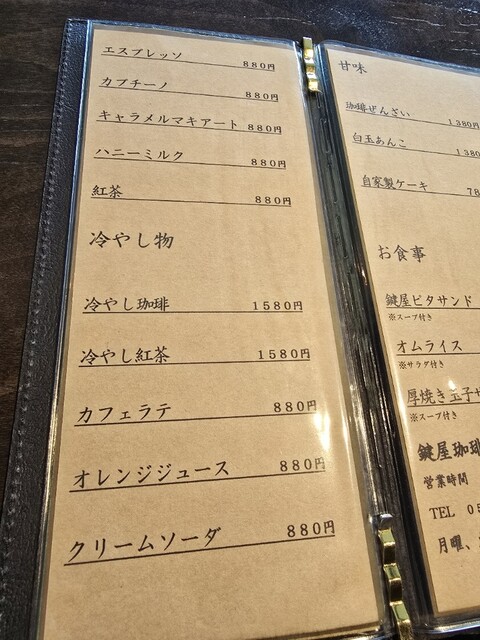 エスプレッソ 880円
カプチーノ 880円
キャラメルマキアート 880円
ハニーミルク 880円
紅茶 880円
冷やし物
冷やし珈琲 1580円
冷やし紅茶 1580円
カフェラテ 880円
オレンジジュース 880円
クリームソーダ 880円
甘味
珈琲ぜんざい 1380円
白玉あんこ 1380
自家製ケーキ 78
お食事
鍵屋ピタサンド
※スープ付き
オムライス
※サラダ付き
厚焼き玉子サ
※スープ付き
鍵屋珈琲
営業時間
TEL 05
月曜、